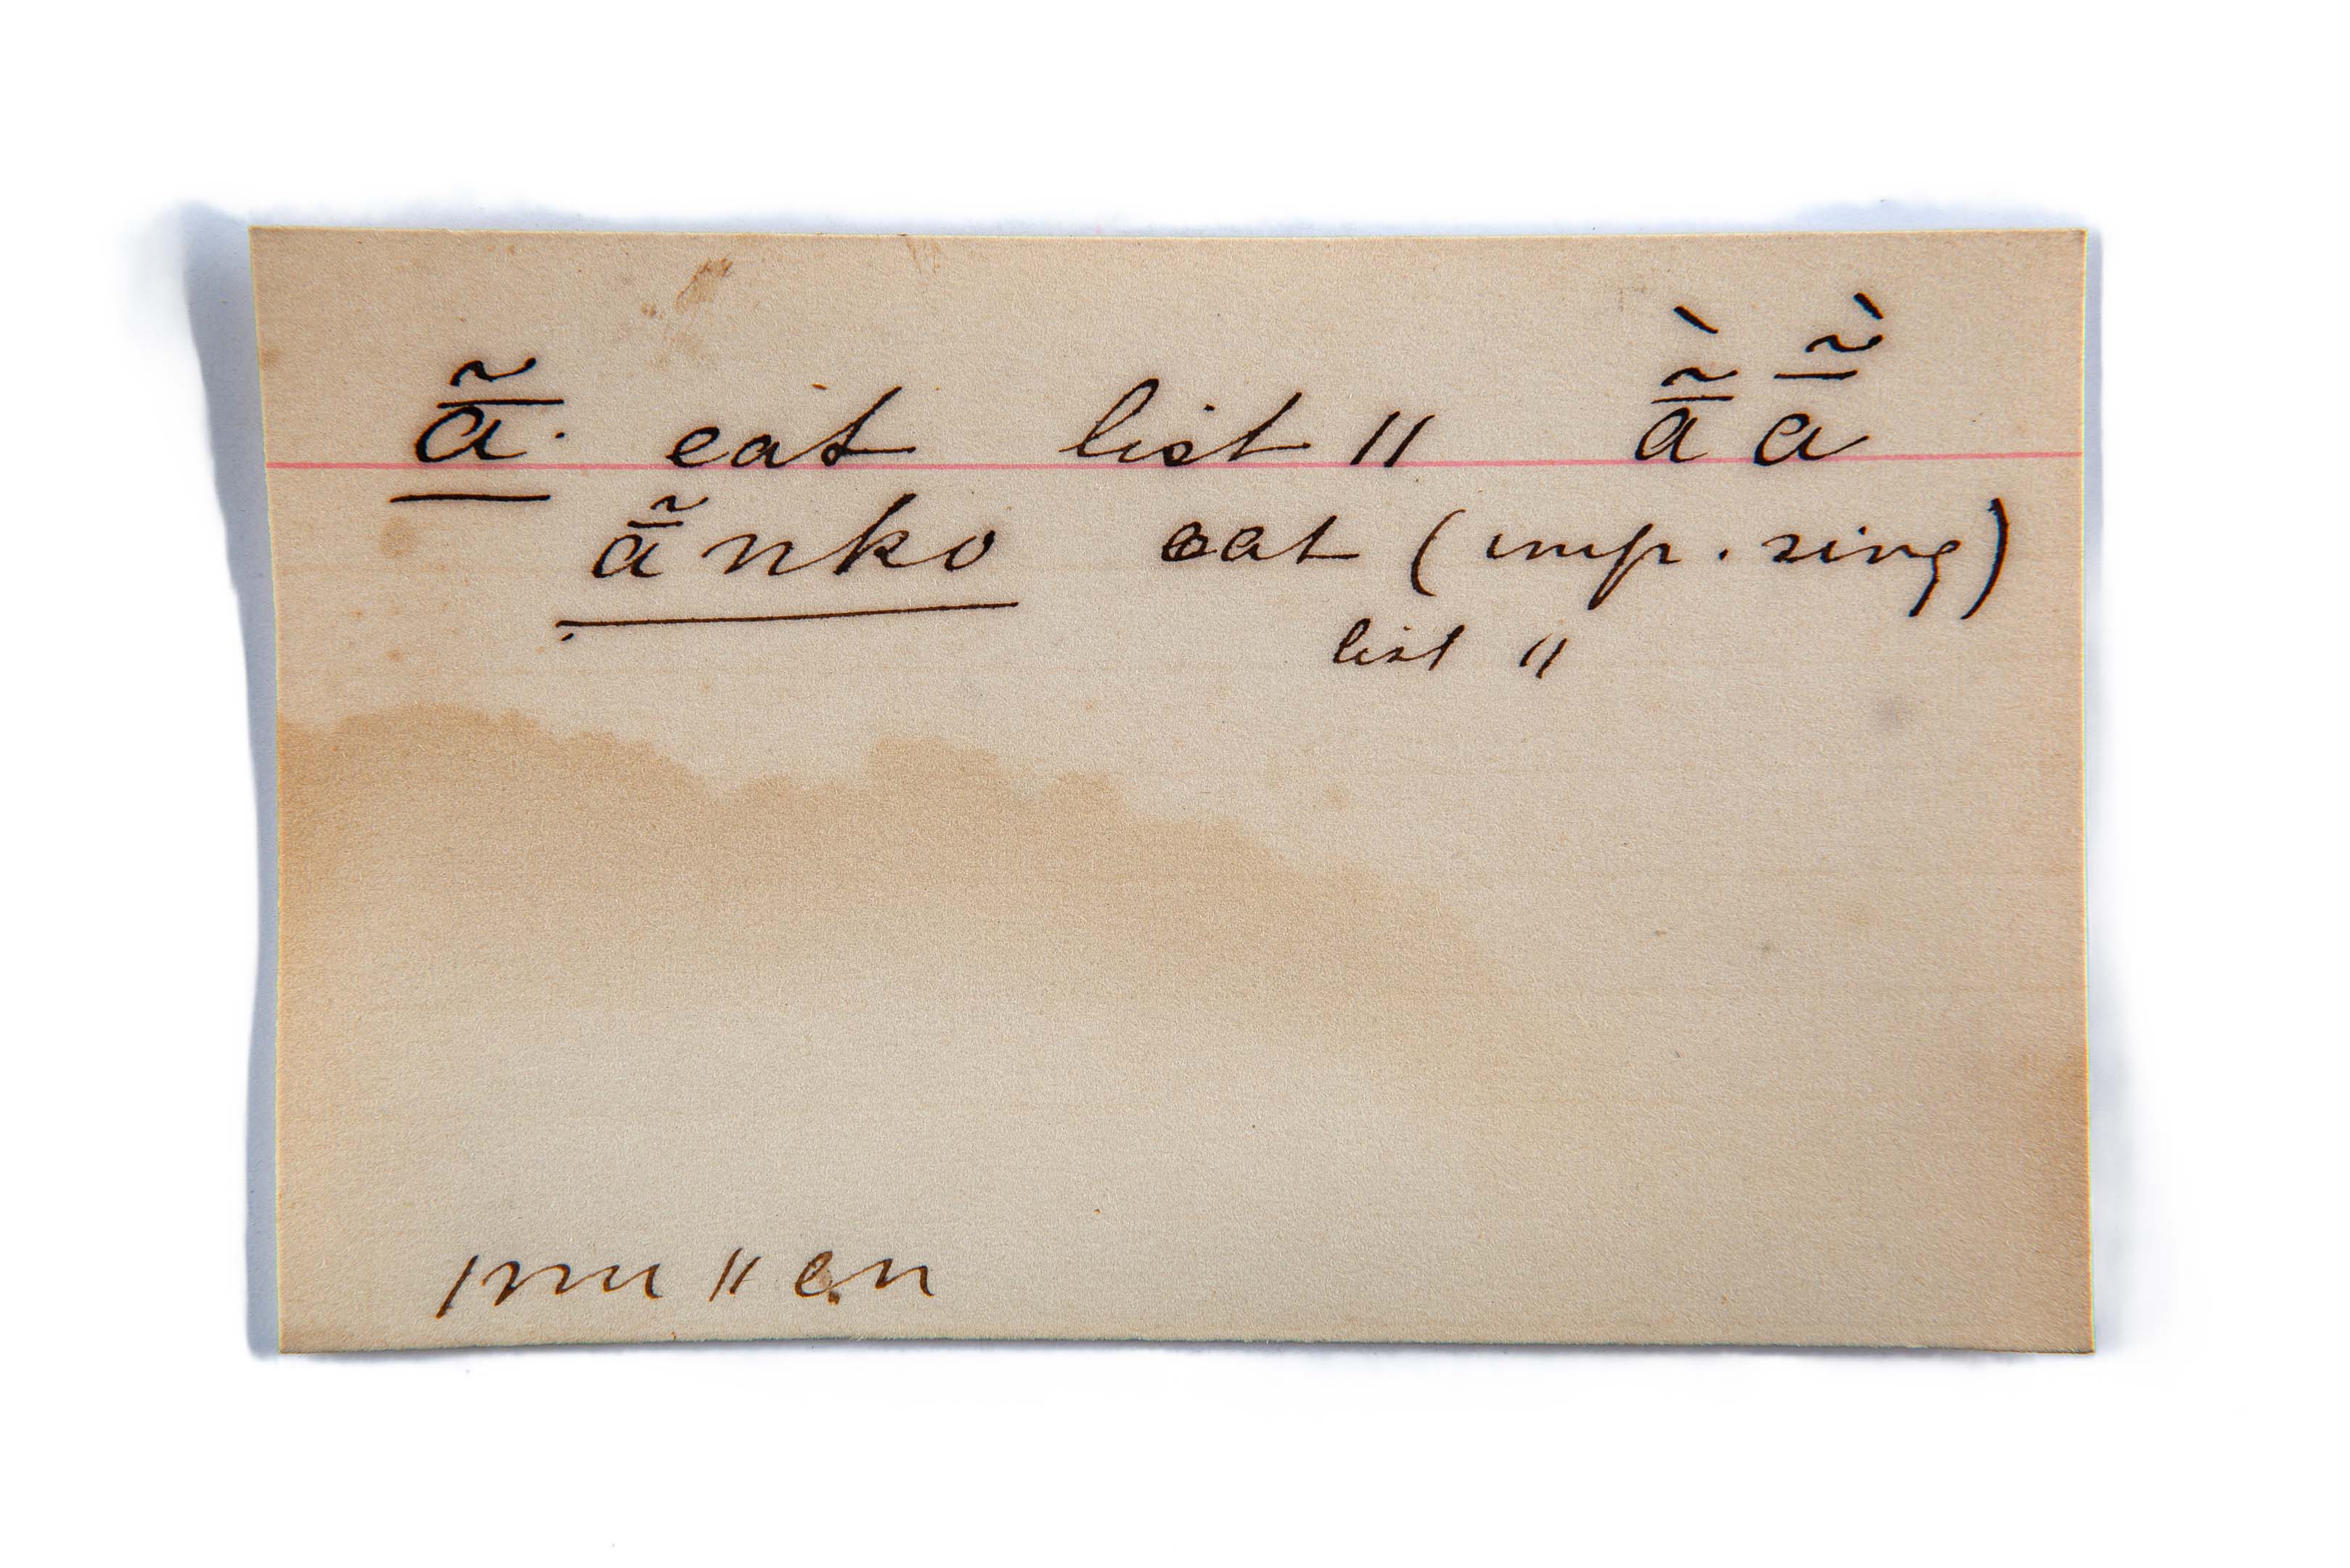 ā̃. eat list 11 ā̃̀ ā̃̀
ā̃nko eat (imp. sing)
list 11